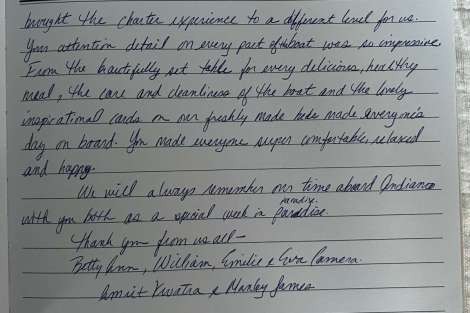 brought the charter experience to a different level for us.
Your attention detail on every part of the boat was so impressive.
From the beautifully set table for every delicious, healthy
meal, the care and cleanliness of the boat and the lovely
inspirational cards on our freshly made beds made everyone's
day on board. You made everyone super comfortable, relaxed
and happy.
We will always remember our time aboard
with you both as a special week in family paradise.
Thank you from us all-
Betty Ann, William, Emilie & Eva Camera.
Amrit & Manley James